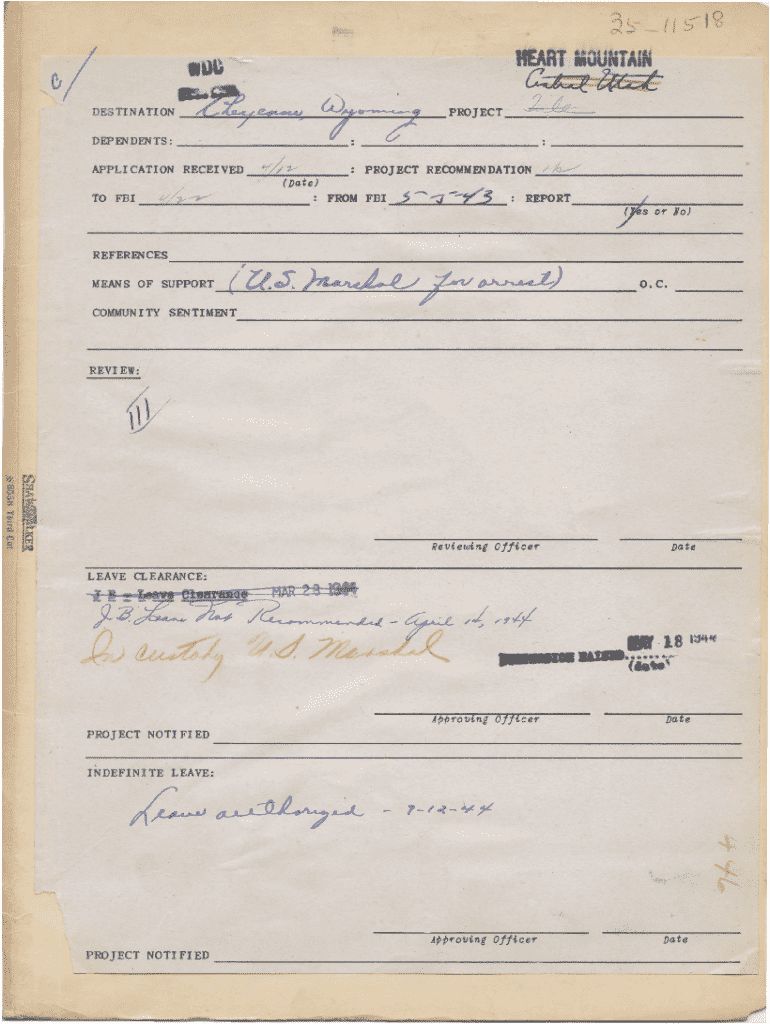 35-11518
WDC
HEART MOUNTAIN
c/
Central Utah
DESTINATION Cheyenne, Wyoming PROJECT
DEPENDENTS: : :
APPLICATION RECEIVED 4/12 : PROJECT RECOMMENDATION
(Date)
TO FBI 4/22 : FROM FBI 5-5-43 : REPORT
(Yes or No)
REFERENCES
MEANS OF SUPPORT (U.S. Marshal for arrest) O.C.
COMMUNITY SENTIMENT
REVIEW:
III
SHAW WALKER
Reviewing Officer Date
LEAVE CLEARANCE:
J B - Leave Clearance MAR 28 1944
J.B. Leave Not Recommended - April 14, 1944
In custody U.S. Marshal
SUSPENSION RAISED MAY 18 1944
(date)
Approving Officer Date
PROJECT NOTIFIED
INDEFINITE LEAVE:
Leave authorized - 9-12-44
Approving Officer Date
PROJECT NOTIFIED